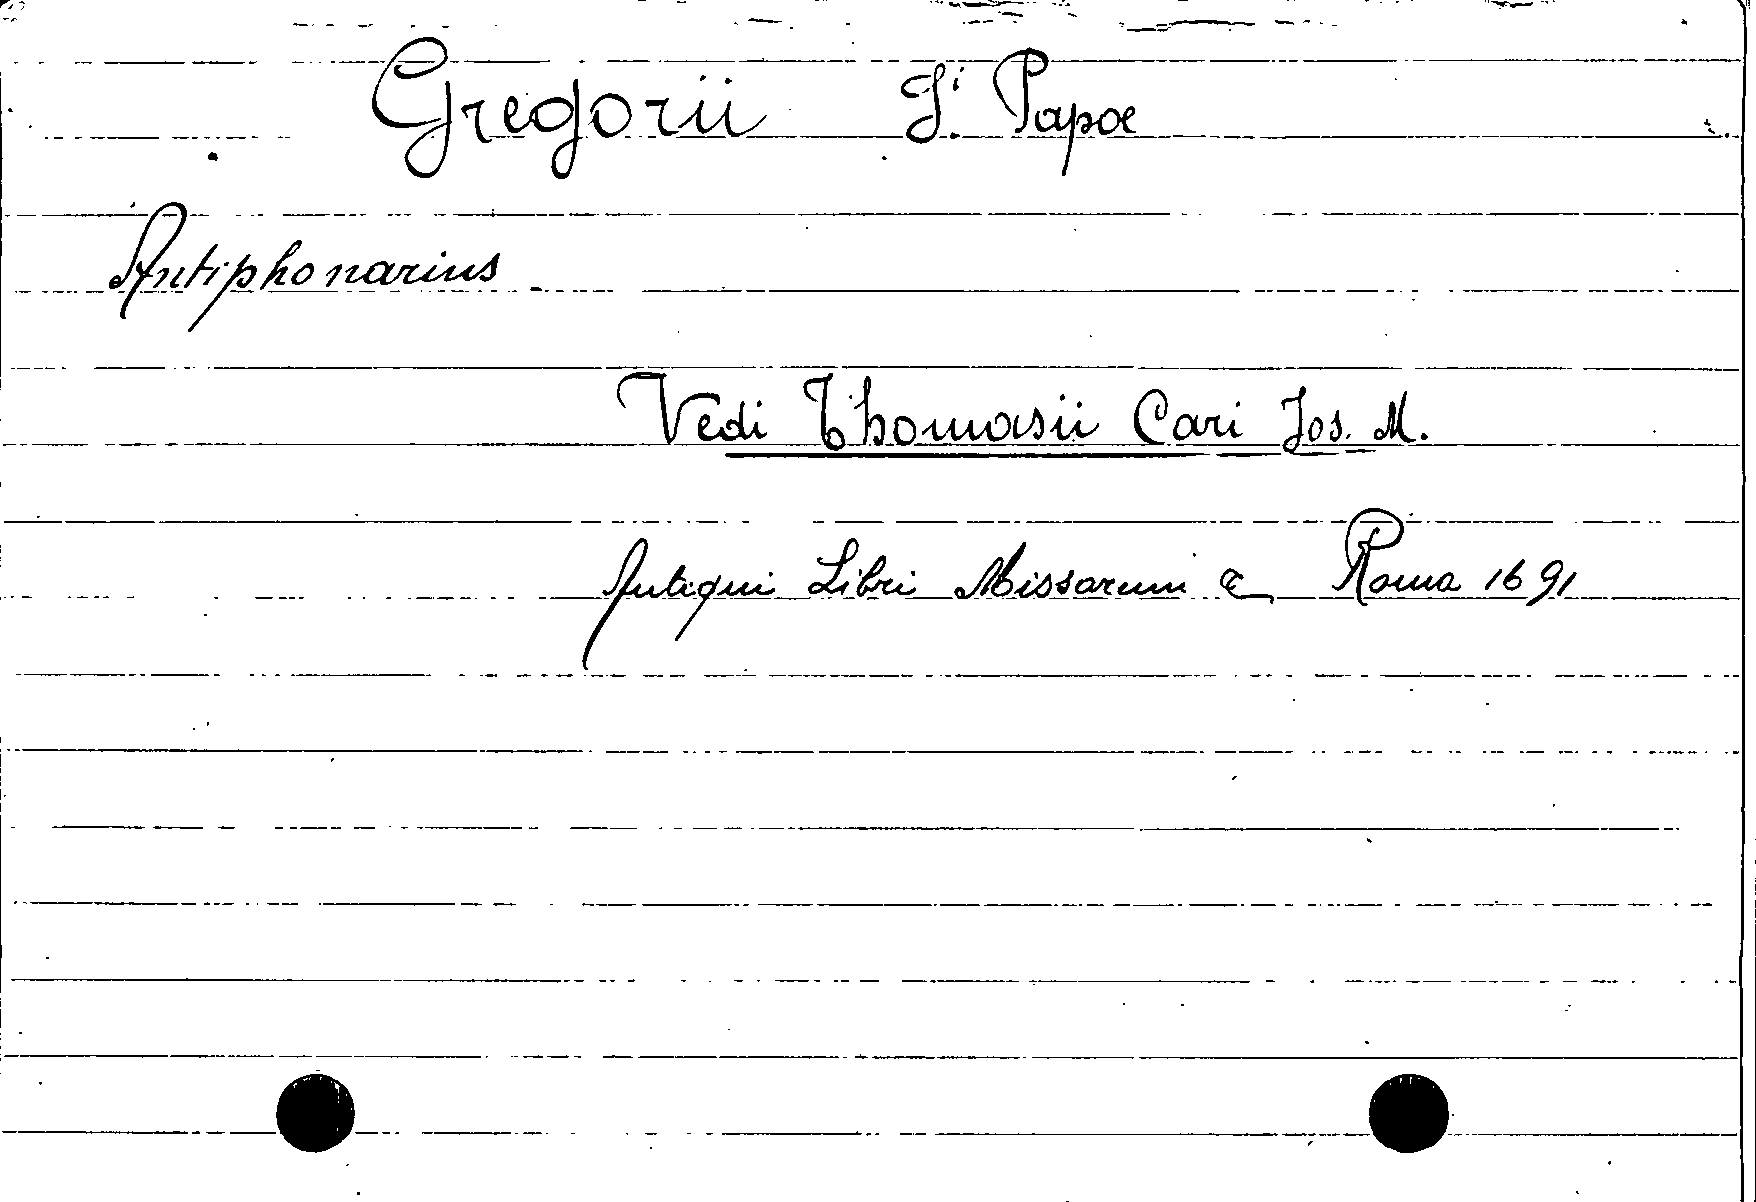 Gregorii S.i Papae
Antiphonarius
Vedi Thomasii Cari Jos. M.
Antiqui Libri Missarum &c Roma 1691